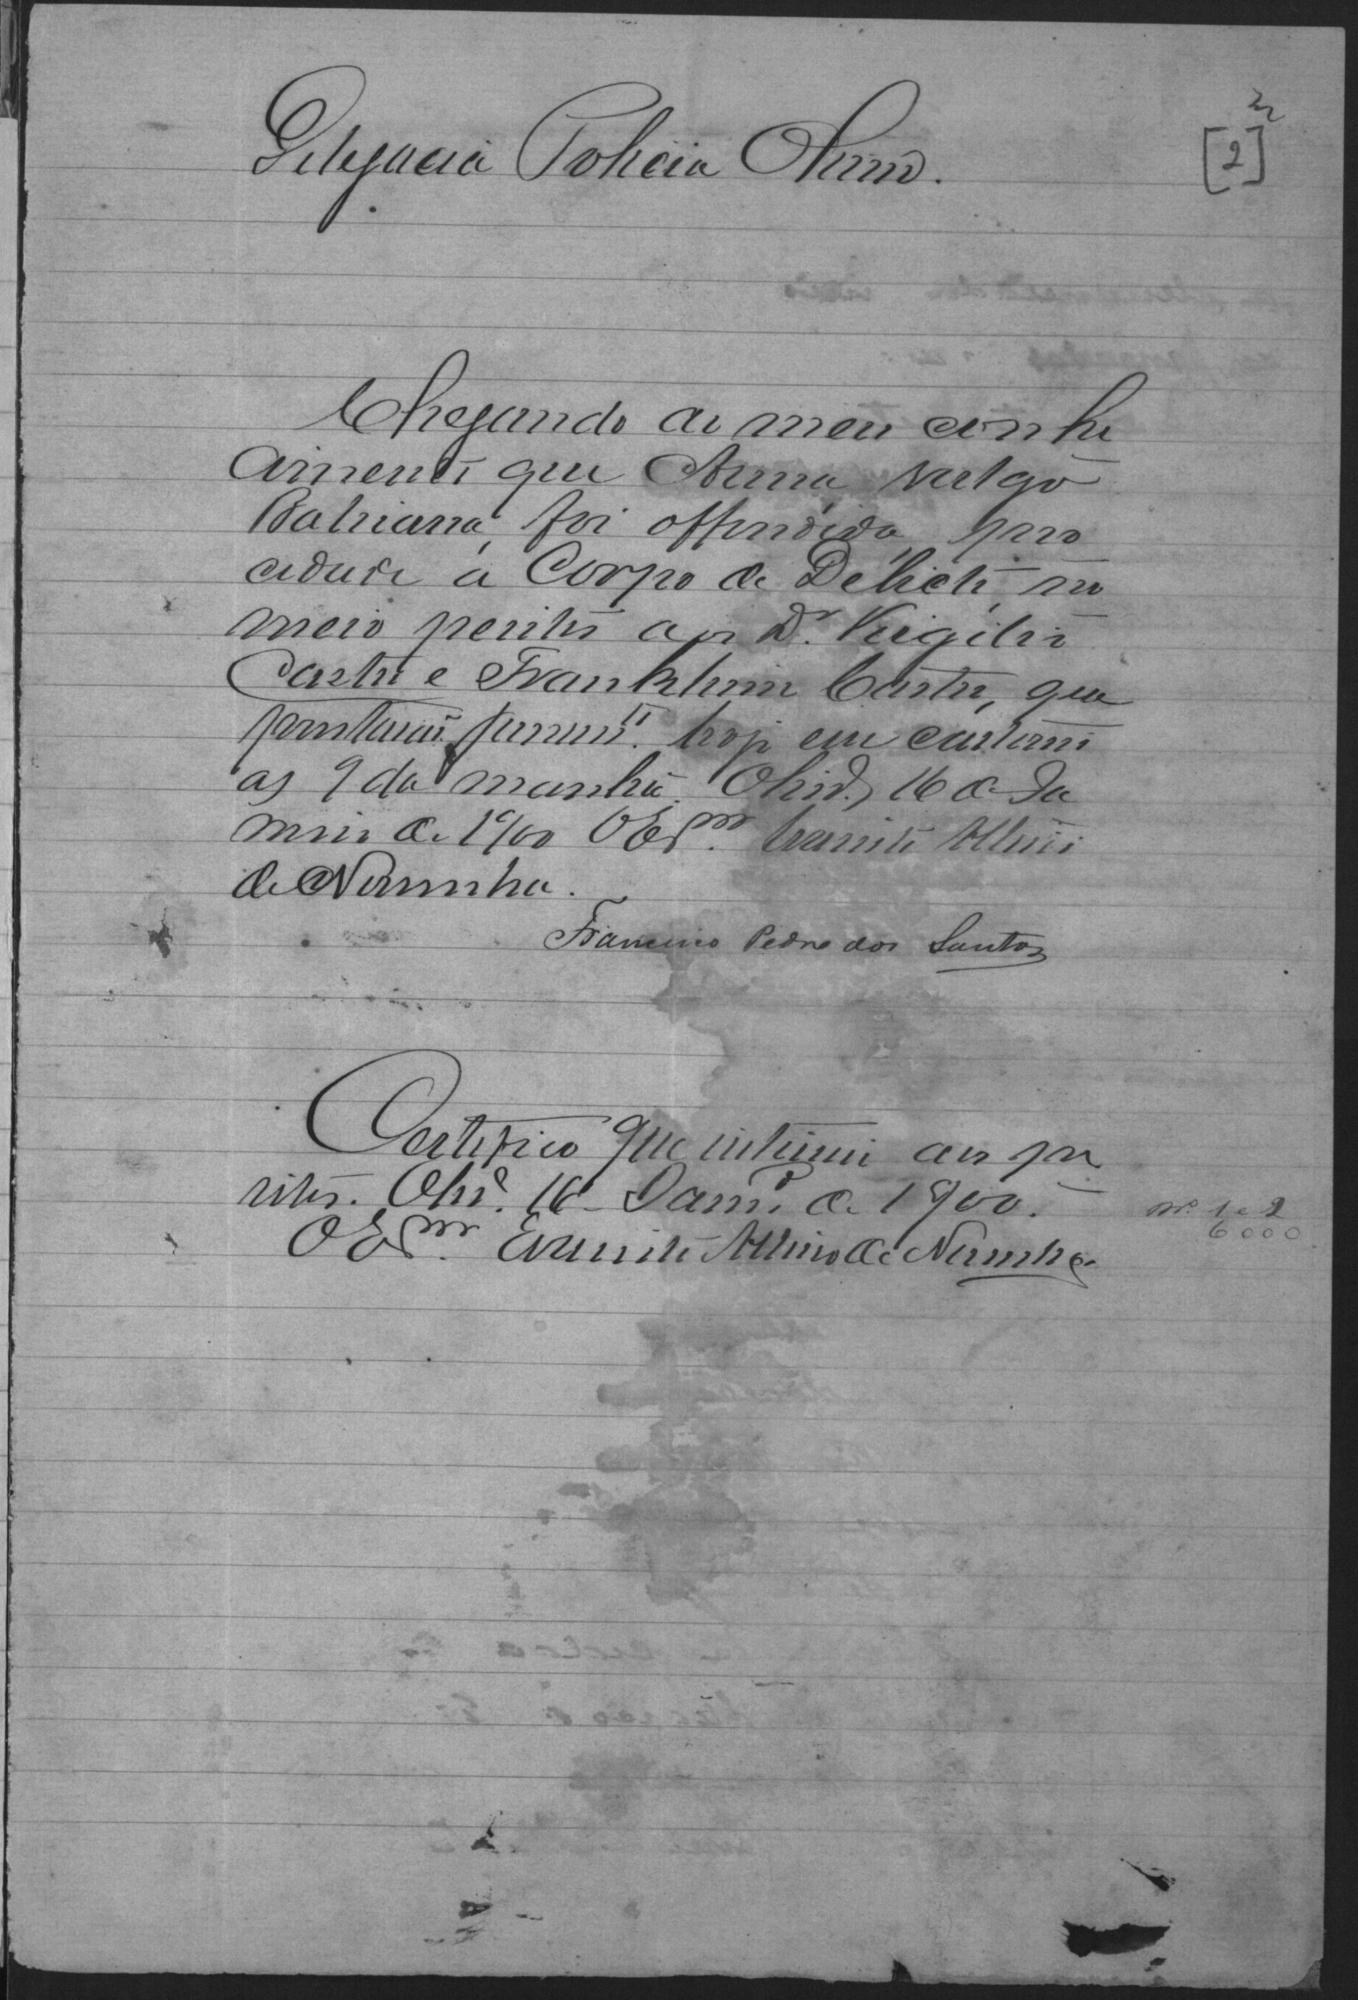 2
[2]
Delegacia Policia Olivd.
Chegando ao meu conhe
cimento que Anna, vulgo
Bahiana, foi offendida, pro
ceda-se a Corpo de Delicto, no
meio peritos aos Dr. Virgilio
Castro e Franklim Castro, que
prestarão juramto. hoje em cartorio
as 9 da manhã. Olivd., 16 de Ja
neiro de 1900 O Escr.m Evaristo Albino
de Noronha.
Francisco Pedro dos Santos
Certifico que intimei aos pe
ritos. Olivd. 16 Janro. de 1900.
O Escr.m Evaristo Albino de Noronha
nº 1 e 2
6000